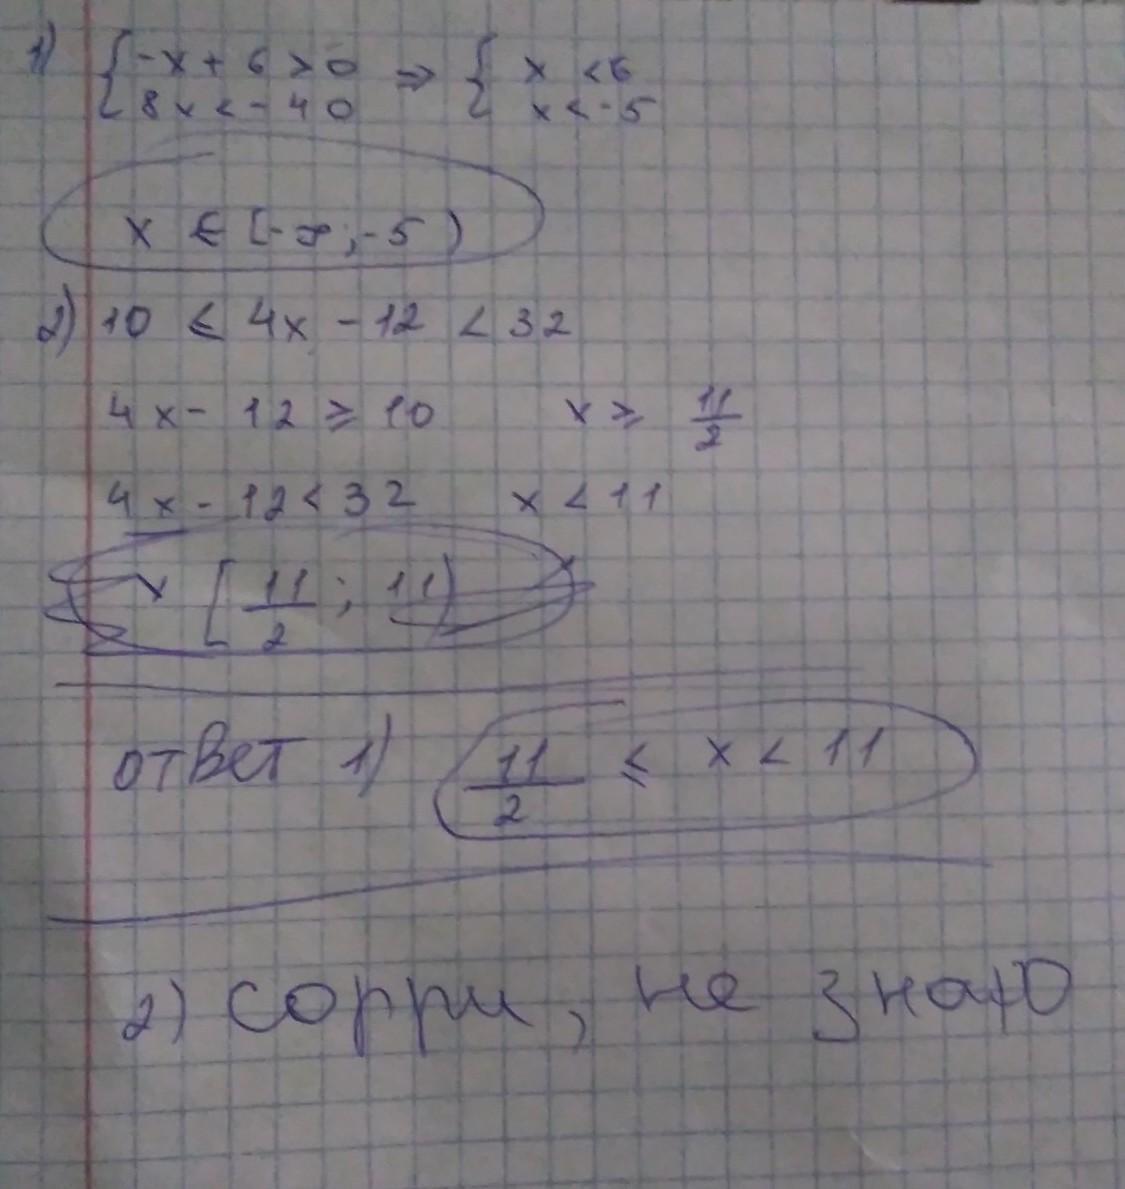 1) { -x + 6 > 0 ⇒ { x < 6
8x < -40 x < -5
x ∈ [-∞; -5)
2) 10 ≤ 4x - 12 < 32
4x - 12 ≥ 10 x ≥ 11/2
4x - 12 < 32 x < 11
x [11/2; 11)
ответ 1) 11/2 ≤ x < 11
2) сорри, не знаю